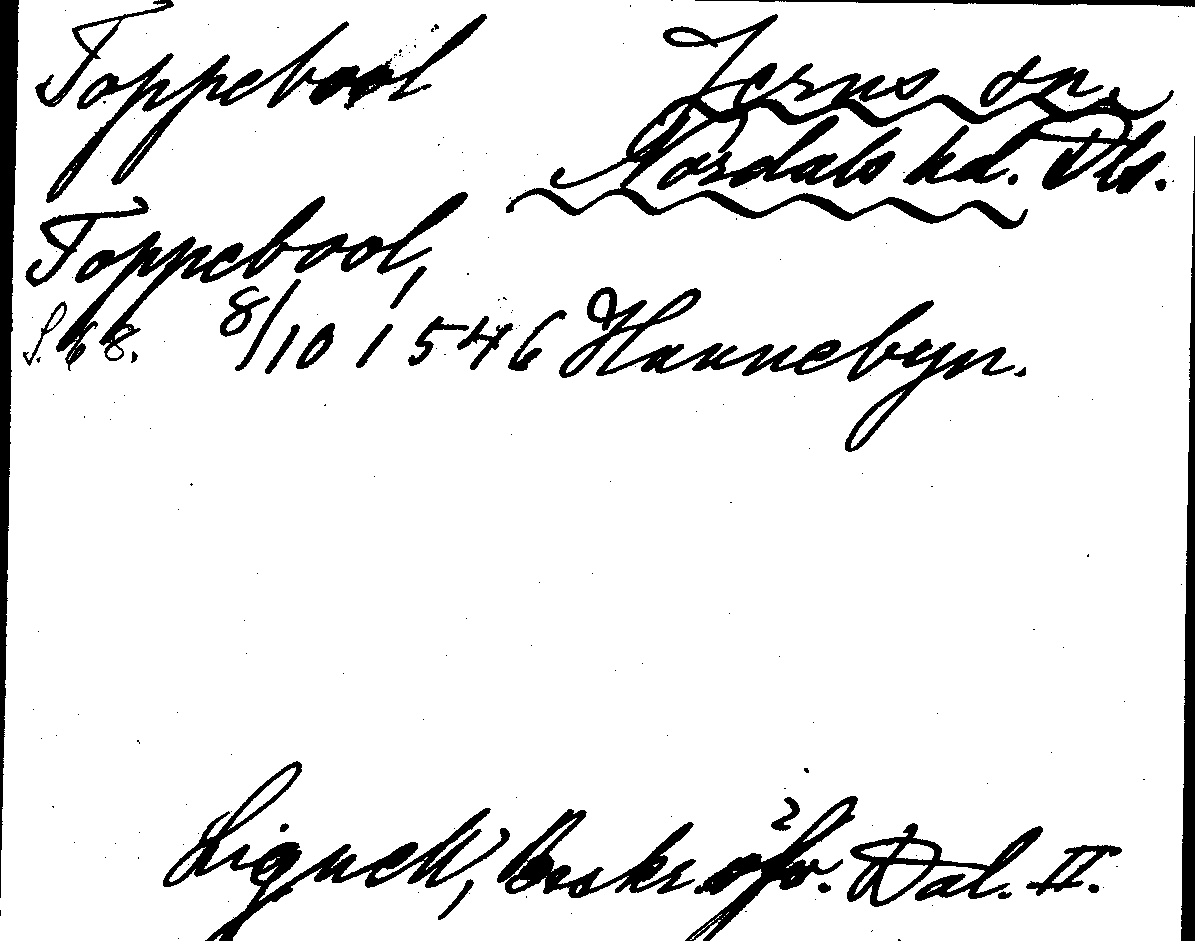 Toppebool
Jerns sn.
Nordals hd. Dls.
Toppebool,
S. 68. 8/10 1546 Hannebyn.
Lignell, Beskr. öfv. Dal. II.